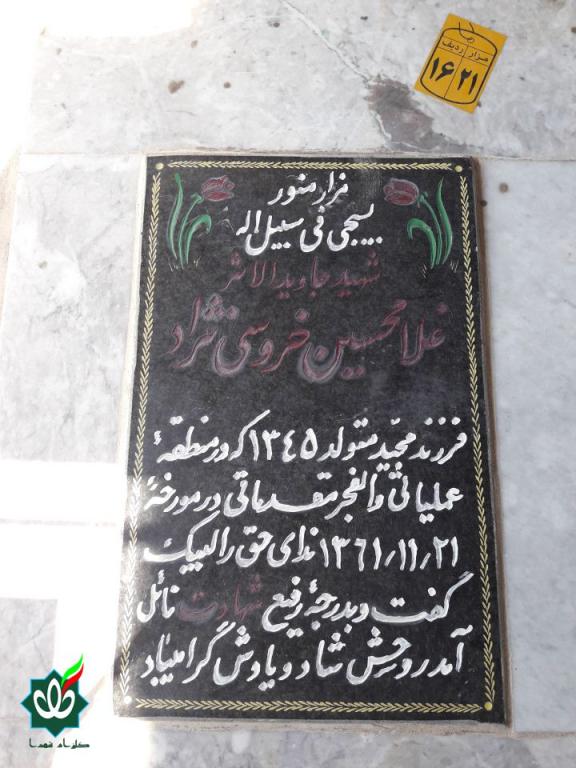 مزار ردیف
۲۱ ۱۶
مزار منور
بسیجی فی سبیل اله
شهید جاوید الاثر
غلامحسین خروسی نژاد
فرزند مجید متولد ۱۳۴۵ که در منطقهٔ
عملیاتی والفجر مقدماتی در مورخهٔ
۱۳۶۱/۱۱/۲۱ ندای حق را لبیک
گفت و بدرجهٔ رفیع شهادت نائل
آمد روحش شاد و یادش گرامیباد